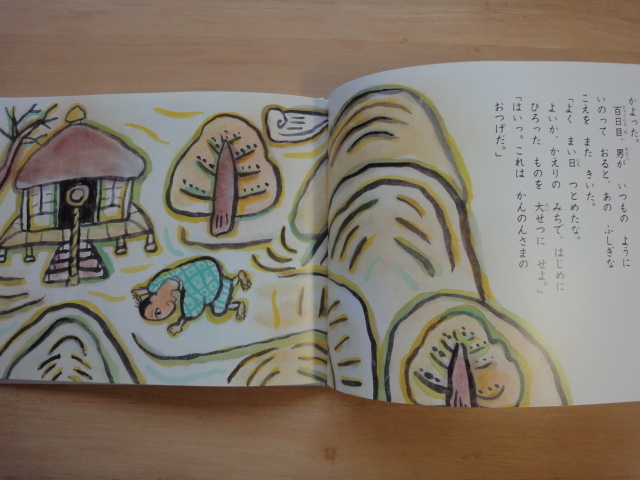 かよった。
百日目、男が いつもの ように
いのって おると、あの ふしぎな
こえを また きいた。
「よく まい日 つとめたな。
よいか、かえりの みちで、はじめに
ひろった ものを 大せつに せよ。」
「はいっ。これは かんのんさまの
おつげだ。」